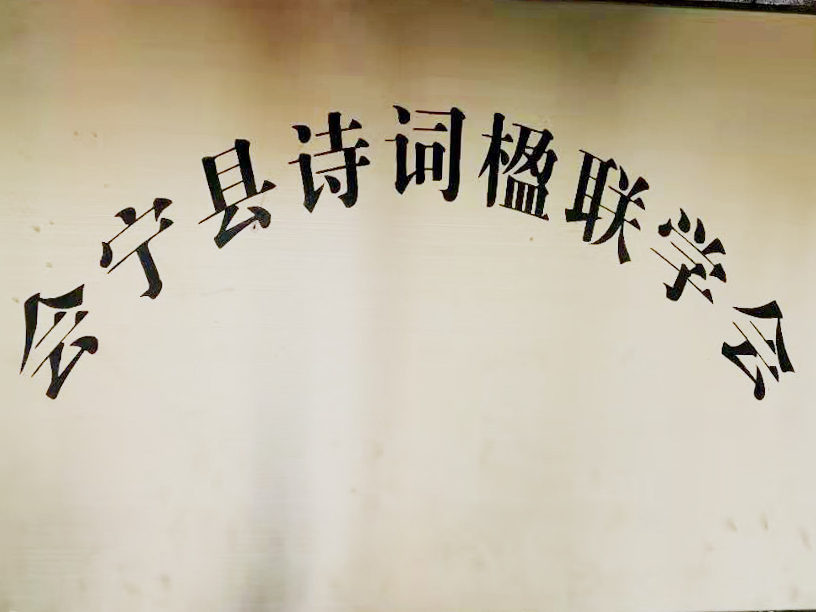 会宁县诗词楹联学会